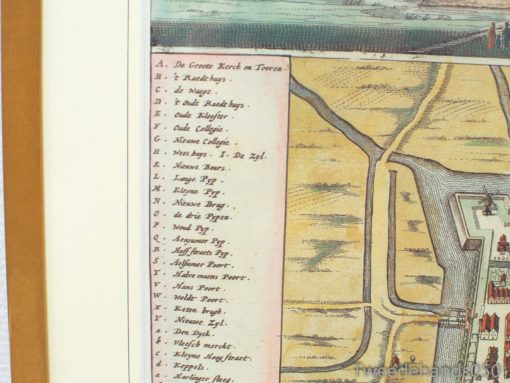 A. De Groote Kerck en Tooren.
B. 't Raedthuys.
C. de Waege.
D. 't Oudt Raedthuys.
E. Oude Klooster.
F. Oude Collegie.
G. Nieuwe Collegie.
H. Weeshuys. I. De Zyl.
K. Nieuwe Beurs.
L. Lange Pyp.
M. Kleyne Pyp.
N. Nieuwe Brug.
O. de drie Pypen.
P. Woud Pyp.
Q. Pyp.
R. Hoffstraets Pyp.
S. Poort.
T. Poort.
V. Poort.
W. Poort.
x. brugh.
Y. Nieuwe Zyl.
a. Den Dyck.
b. Vleesch merckt.
c. Kleyne Hoog straet.
d. Keppels.
e. Harlinger steeg.
Tweedehands250